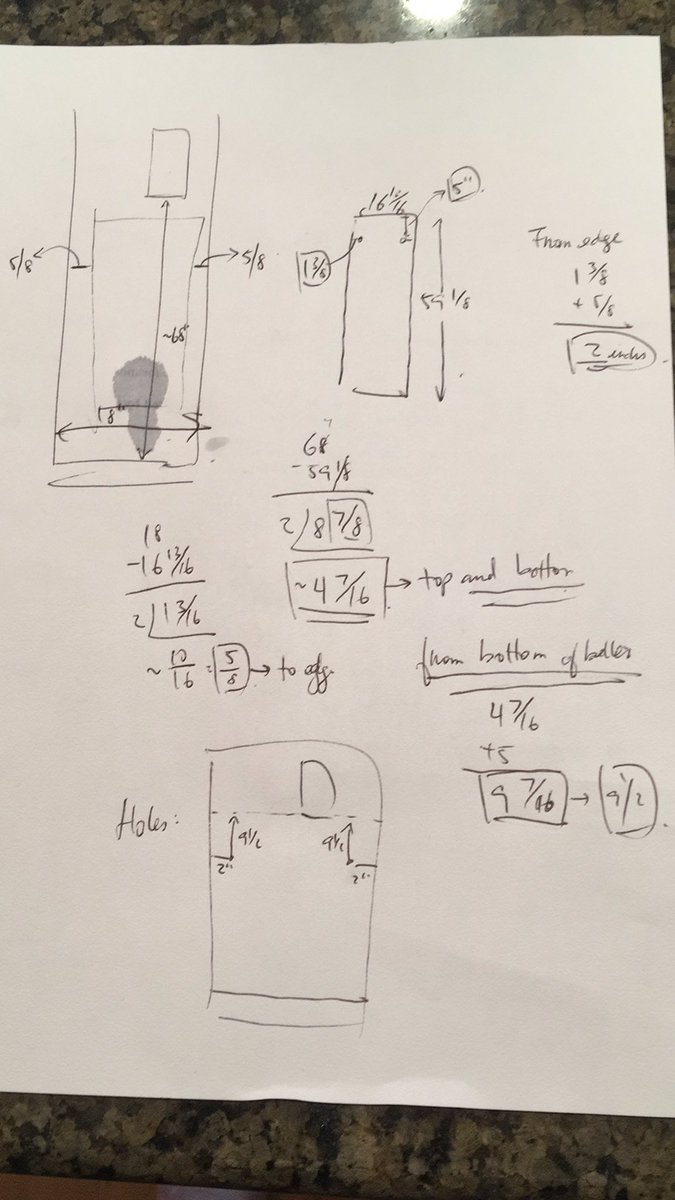 5/8
5/8
~68"
18"
16 13/16
5"
1 3/8
59 1/8
From edge
1 3/8
+ 5/8
2 inches
68"
- 59 1/8
2/8 7/8
~4 7/16 → top and bottom
18
-16 13/16
2/1 3/16
~ 10/16 = 5/8 → to edge
from bottom of
4 7/16
+5
9 7/16 → 9 1/2
Holes:
9 1/2
9 1/2
2"
2"